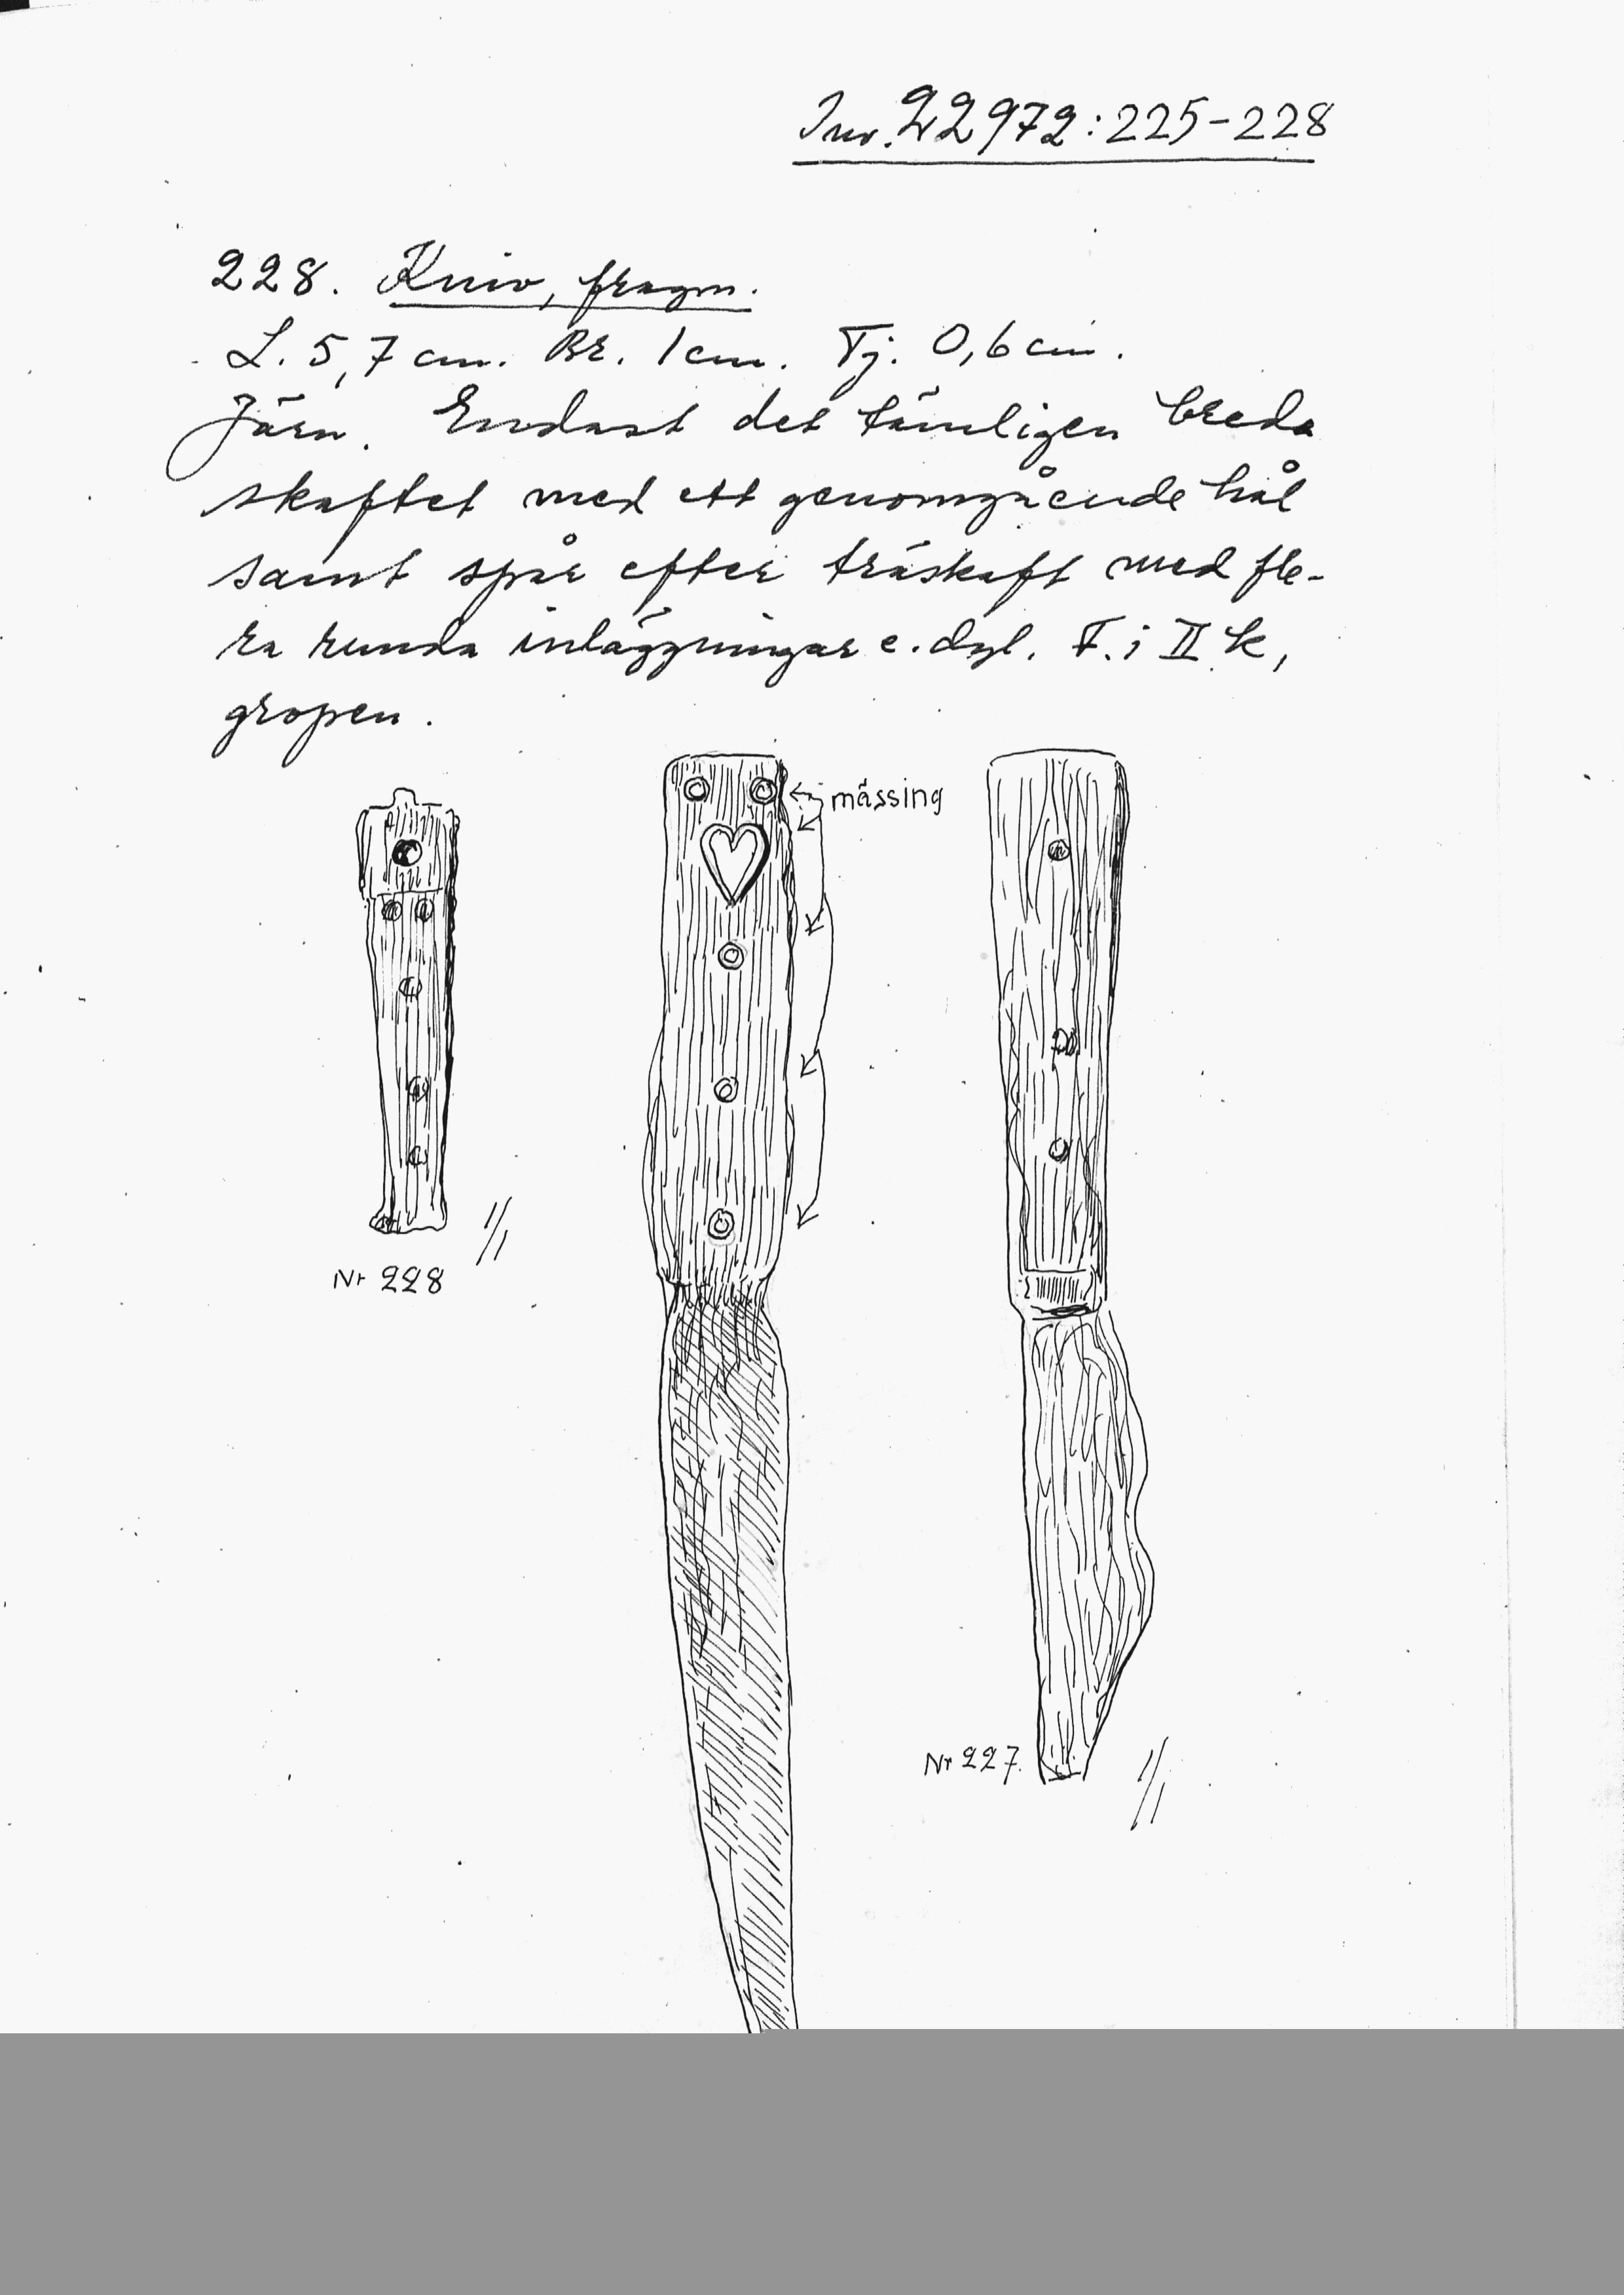 Inv. 22972:225-228
228. Kniv, fragm.
L. 5,7 cm. Br. 1 cm. Tj. 0,6 cm.
Järn. Endast det tämligen breda
skaftet med ett genomgående hål
samt spår efter träskaft med fle-
ra runda inläggningar e. dyl. F. i II k,
gropen.
mässing
Nr 228
1/1
Nr 227.
1/1